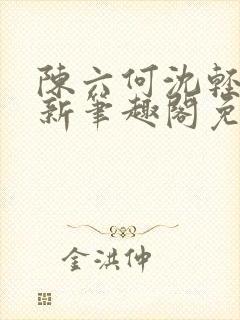 陳六何沈輕
新筆趣閣免
金洪仲